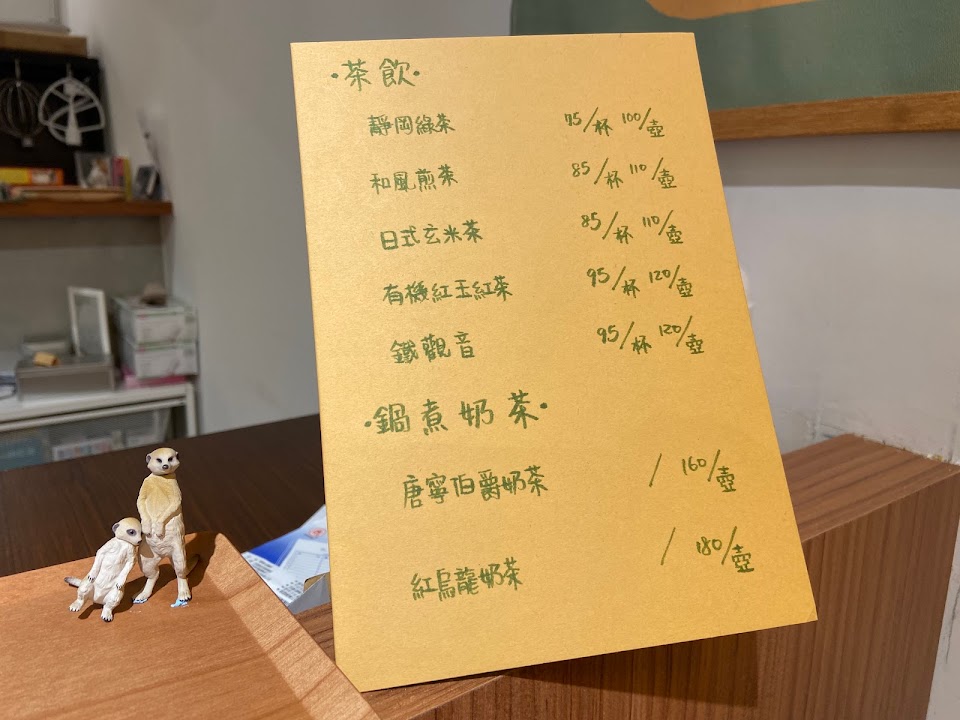 ·茶飲·
靜岡綠茶 75/杯 100/壺
和風煎茶 85/杯 110/壺
日式玄米茶 85/杯 110/壺
有機紅玉紅茶 95/杯 120/壺
鐵觀音 95/杯 120/壺
·鍋煮奶茶·
唐寧伯爵奶茶 / 160/壺
紅烏龍奶茶 / 180/壺